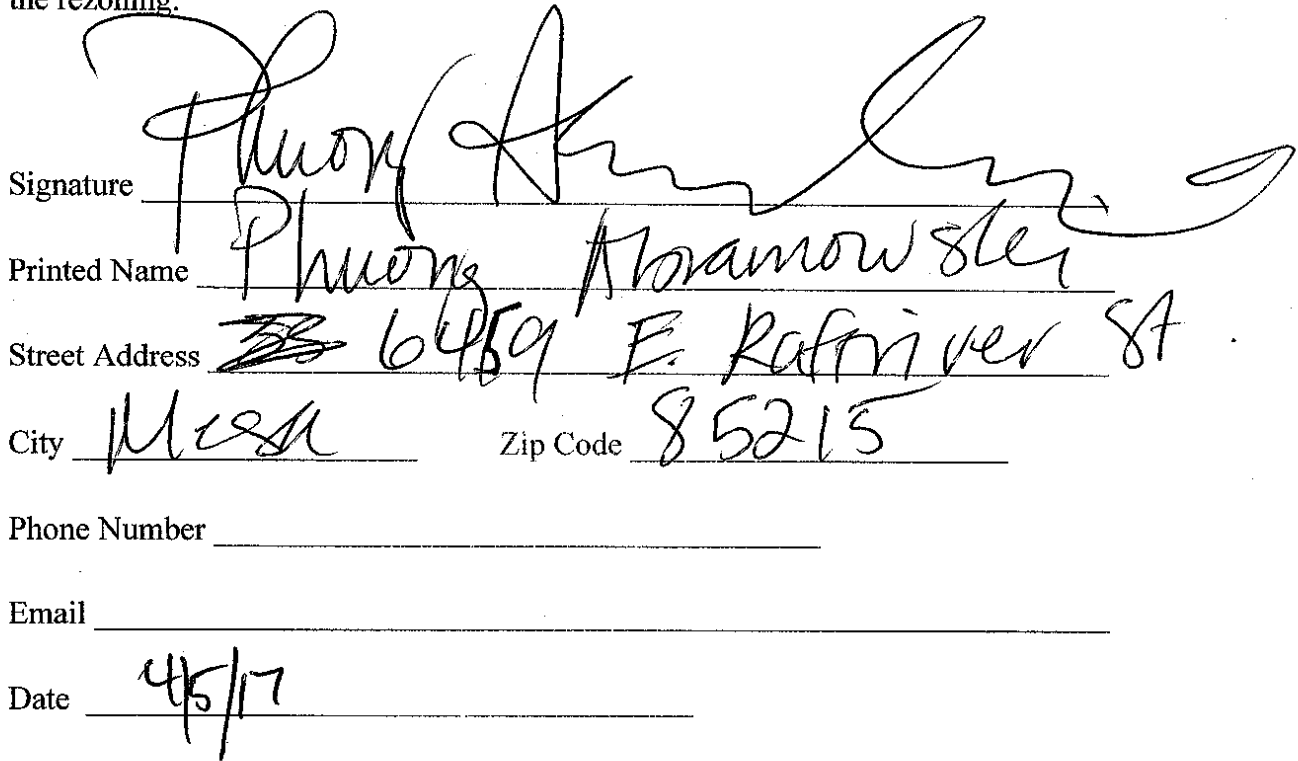 the rezoning.
Signature Phuong
Printed Name Phuong Abramowski
Street Address 6459 E. Rafriver St.
City Mesa Zip Code 85215
Phone Number
Email
Date 4/5/17